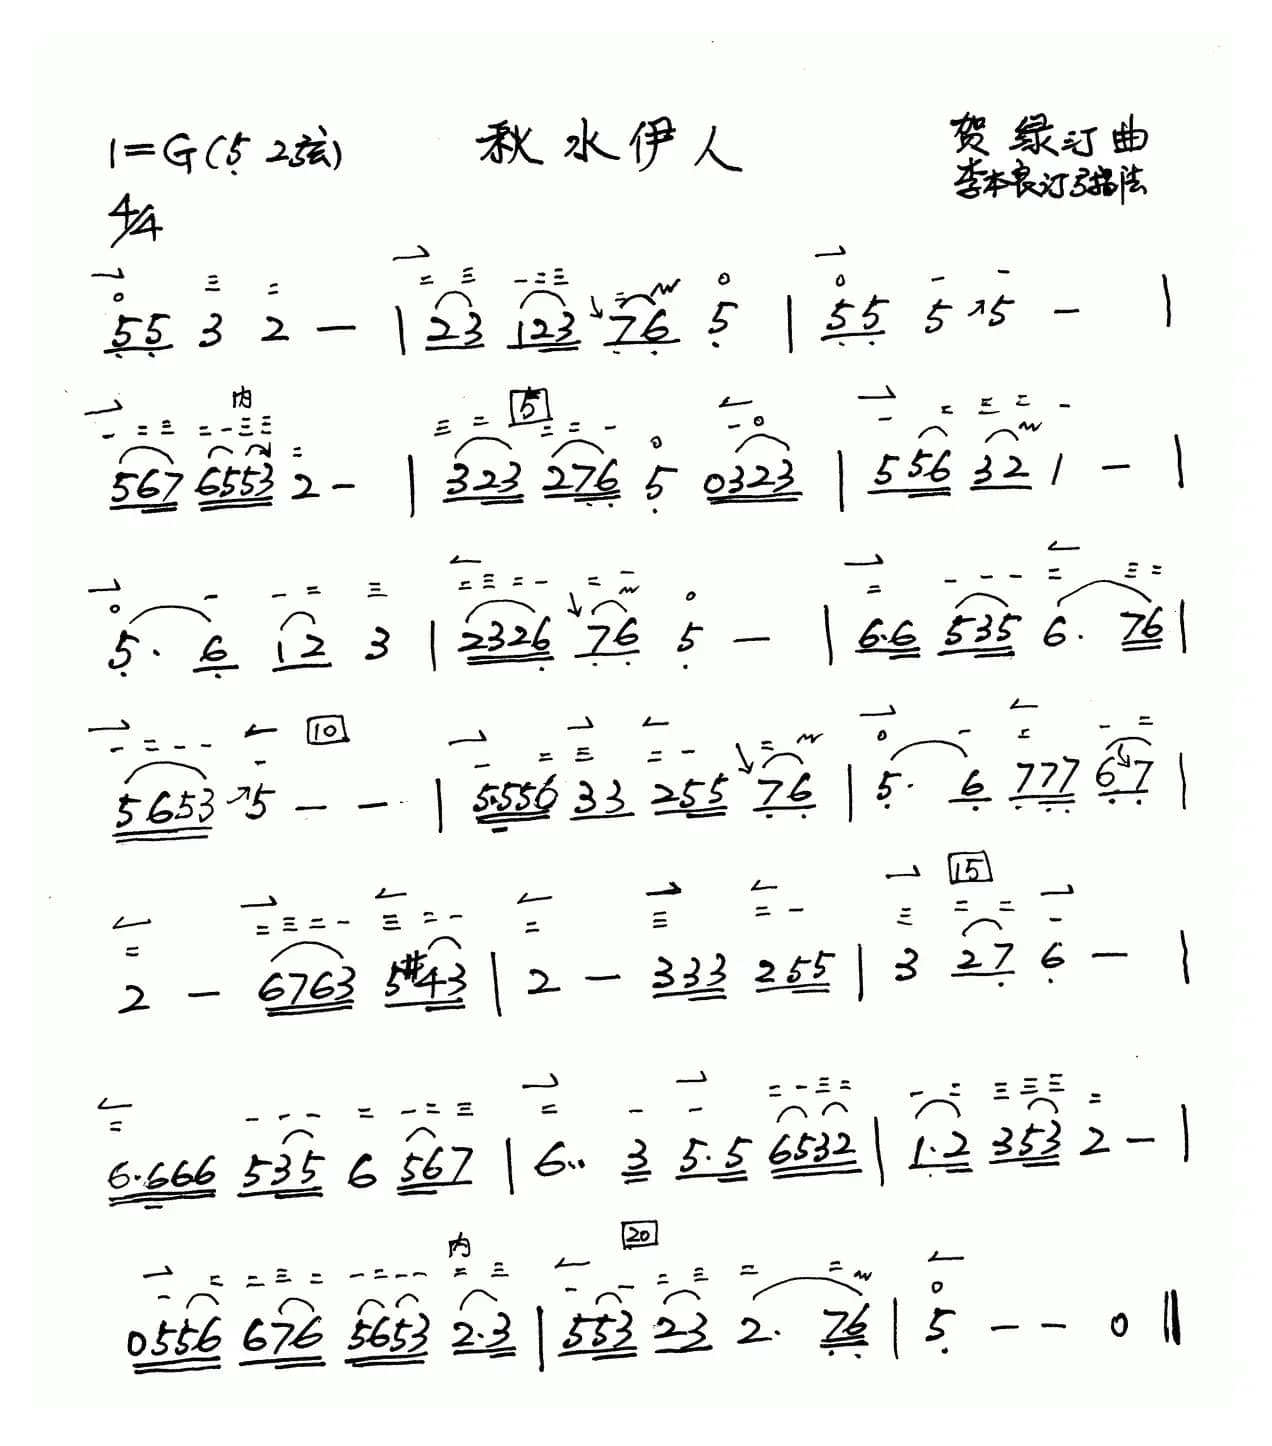 1=G(5 2弦) 秋水伊人 贺绿汀曲
4/4 李本良订弓指法
55 3 2 — | 23 123 76 5 | 55 5 ↗5 — |
内
5
567 6553 2 — | 323 276 5 0323 | 556 32 1 — |
5· 6 12 3 | 2326 76 5 — | 6·6 535 6· 76 |
10
5653 ↗5 — — | 5·556 33 255 76 | 5· 6 777 67 |
15
2 — 6763 5#43 | 2 — 333 255 | 3 27 6 — |
6·666 535 6 567 | 6·· 3 5·5 6532 | 1·2 353 2 — |
内 20
0556 676 5653 2·3 | 553 23 2· 76 | 5 — — 0 ‖